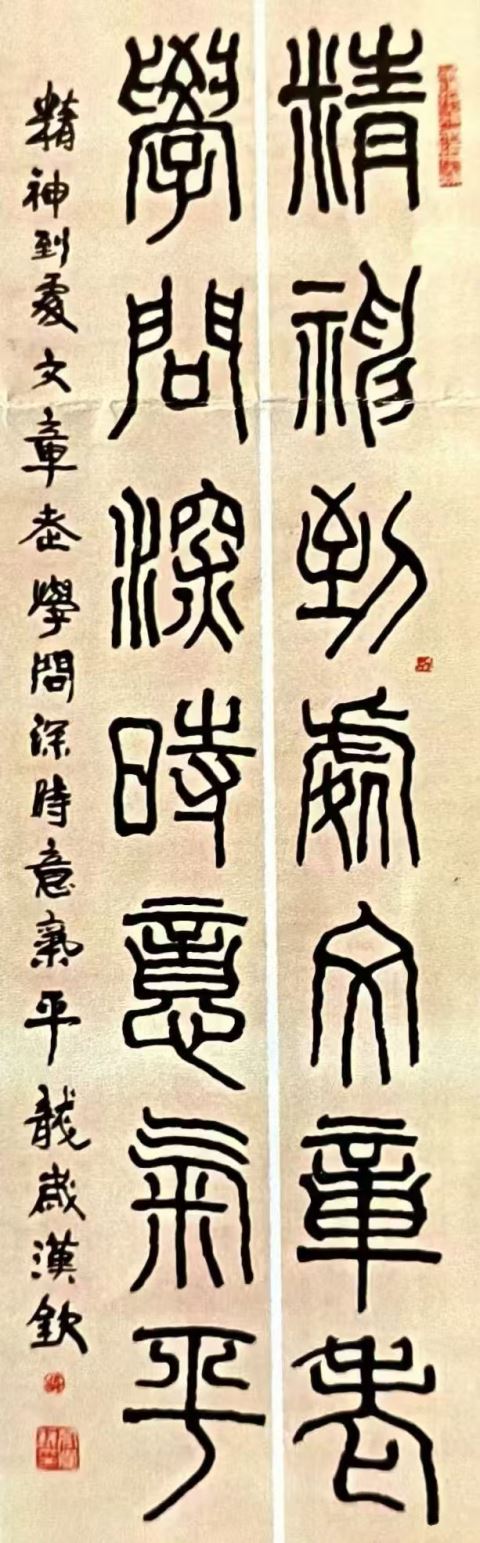 精神到處文章老
學問深時意氣平
精神到處文章老學問深時意氣平龍歲漢欽